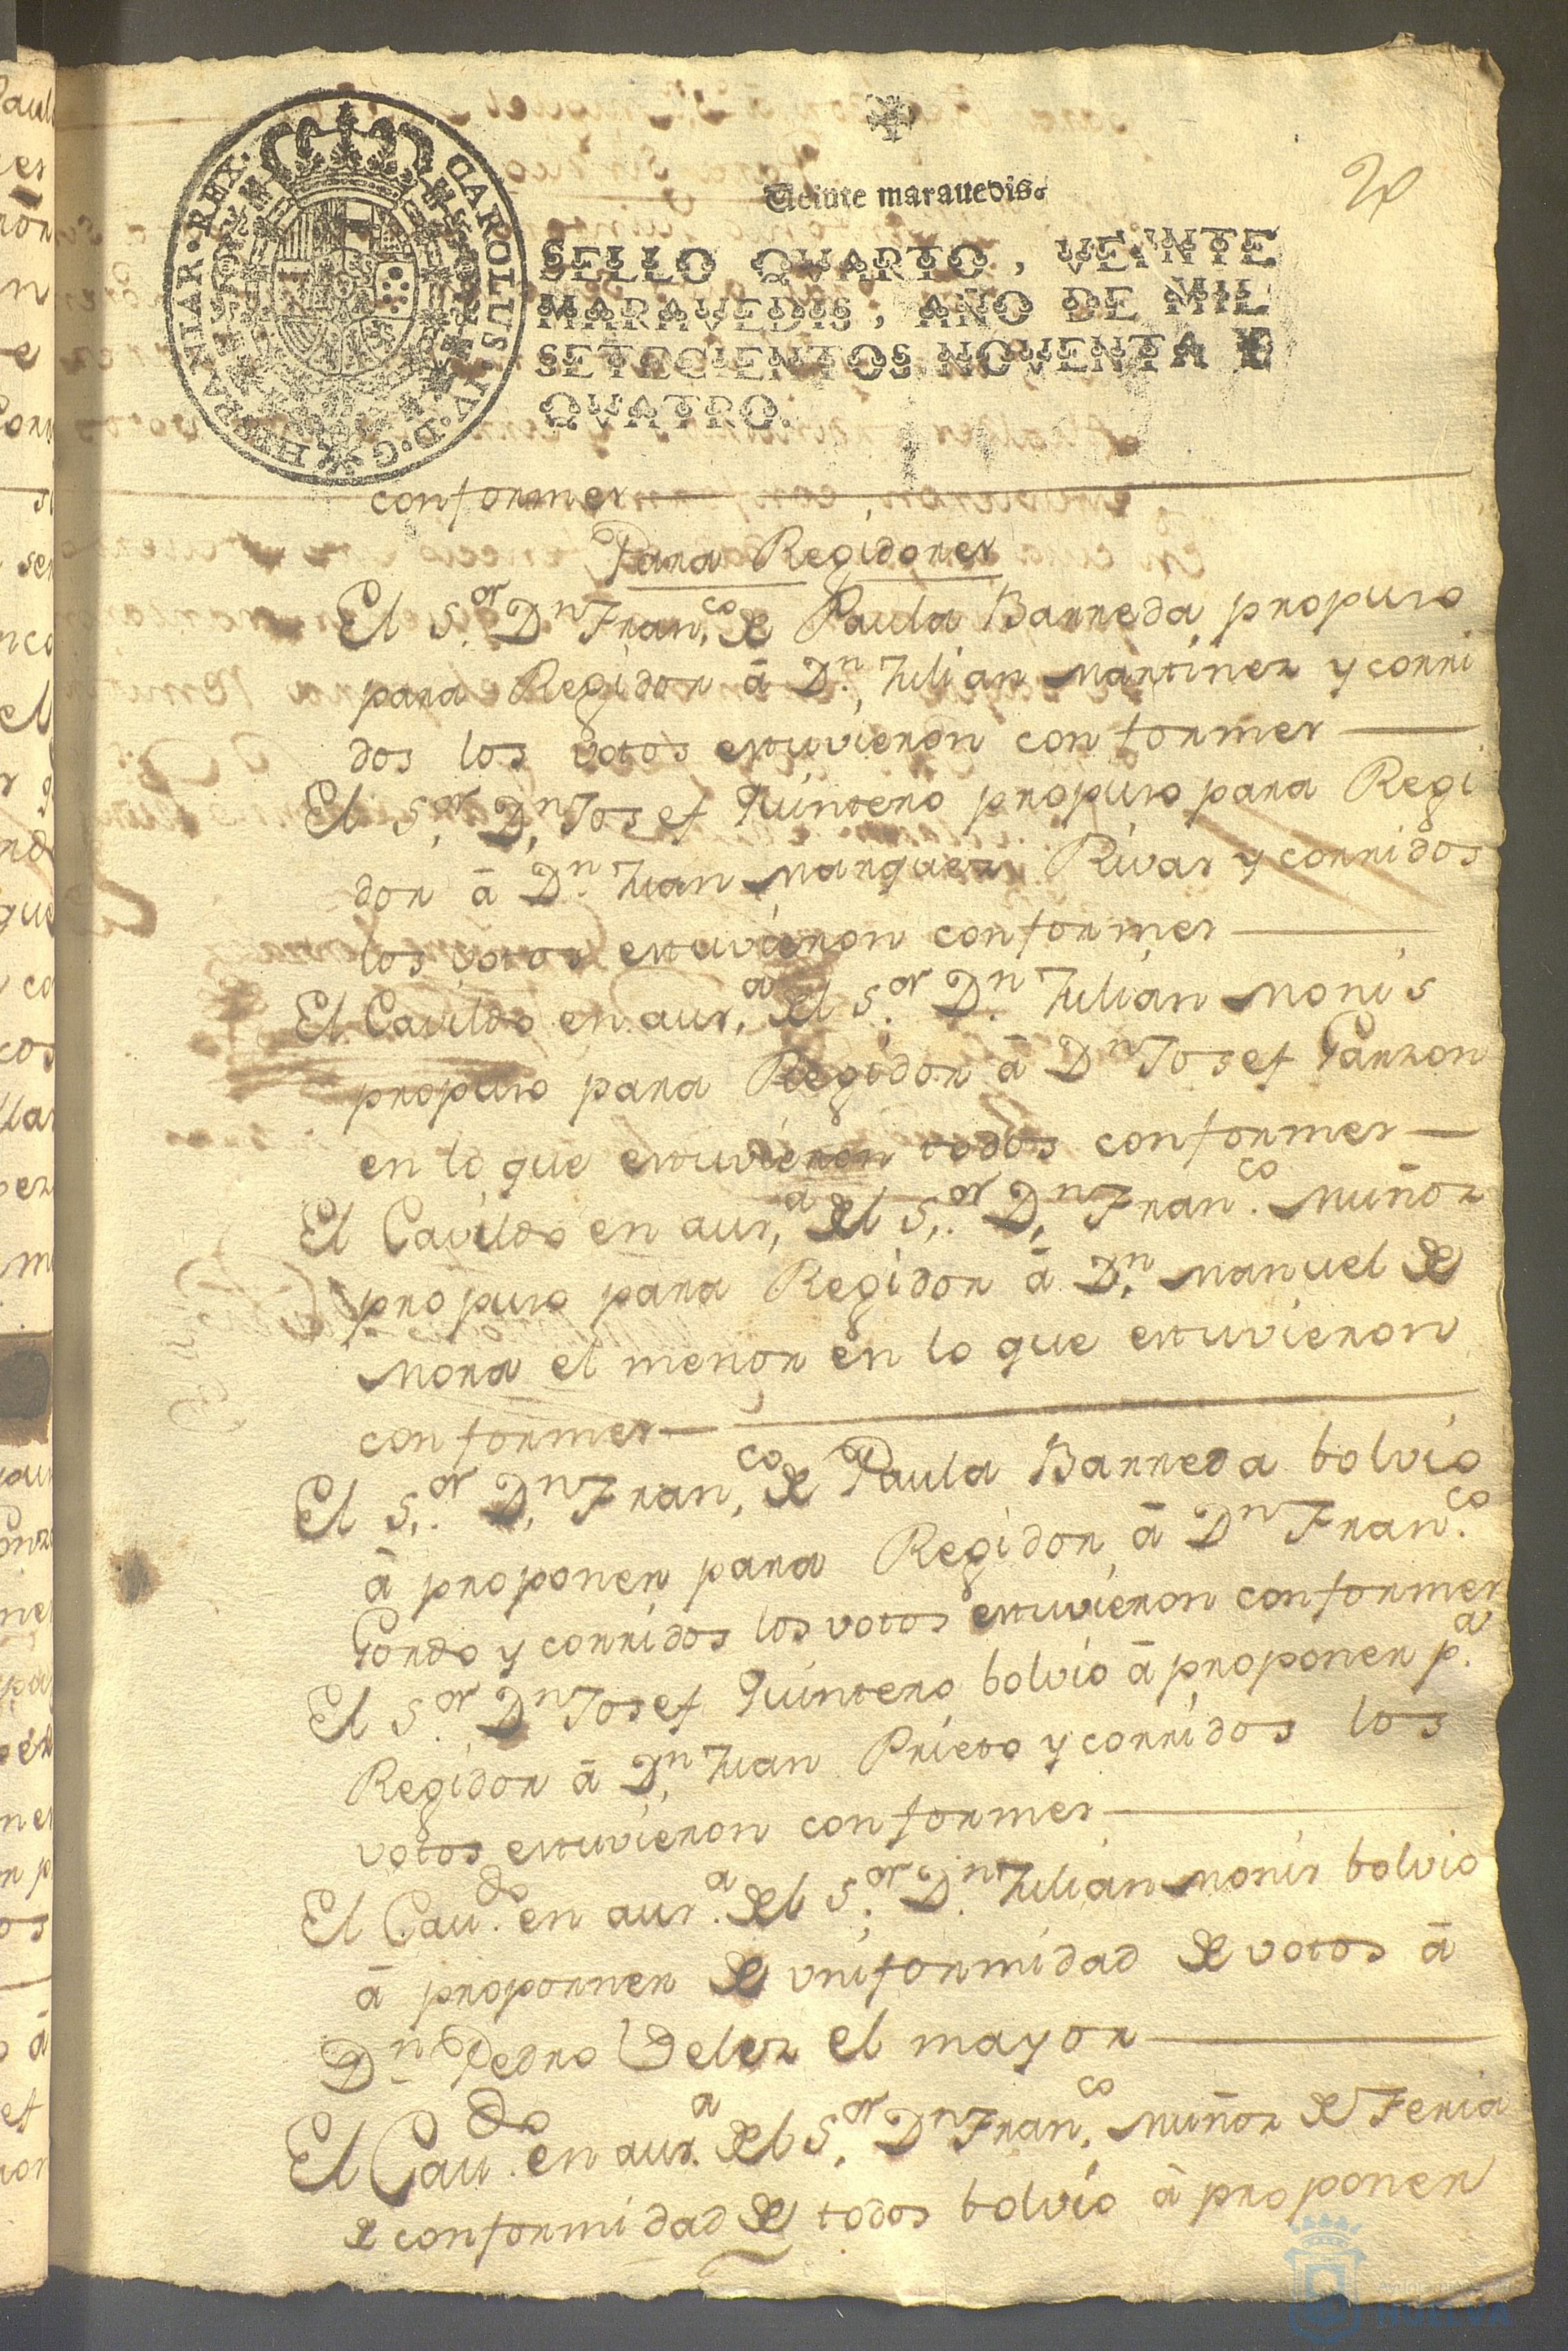 CAROLUS · IV · D · G · HISPANIAR · REX ·
Veinte marauedis.
SELLO QVARTO, VEINTE
MARAVEDIS, AÑO DE MIL
SETECIENTOS NOVENTA Y
QVATRO.
conformes
Para Regidores
El S.or Dn Fran.co de Paula Barreda propuso
para Regidor â Dn. Julian Martinez y corri
dos los votos estuvieron conformes
El S.or Dn Josef Quintero propuso para Regi
dor â Dn. Juan Marquez Rivas y corridos
los votos estuvieron conformes
El Cavildo en aus.a del S.or Dn. Julian Monis
propuso para Regidor â Dn Josef Garzon
en lo que estuvieron todos conformes
El Cavildo en aus.a del S.or Dn Fran.co Muñoz
propuso para Regidor â Dn. Manuel de
Mora el menor en lo que estuvieron
conformes
El S.or Dn Fran.co de Paula Barreda bolvio
â proponer para Regidor â Dn Fran.co
Gordo y corridos los votos estuvieron conformes
El S.or Dn Josef Quintero bolvio â proponer p.a
Regidor â Dn. Juan Prieto y corridos los
votos estuvieron conformes
El Cav.do en aus.a del S.or Dn. Julian Monis bolvio
â proporner de vniformidad de votos â
Dn. Pedro Velez el mayor
El Cav.do en aus.a del S.or Dn Fran.co Muñoz de Feria
de conformidad de todos bolvio â proponer
Ayuntamiento de
HUELVA